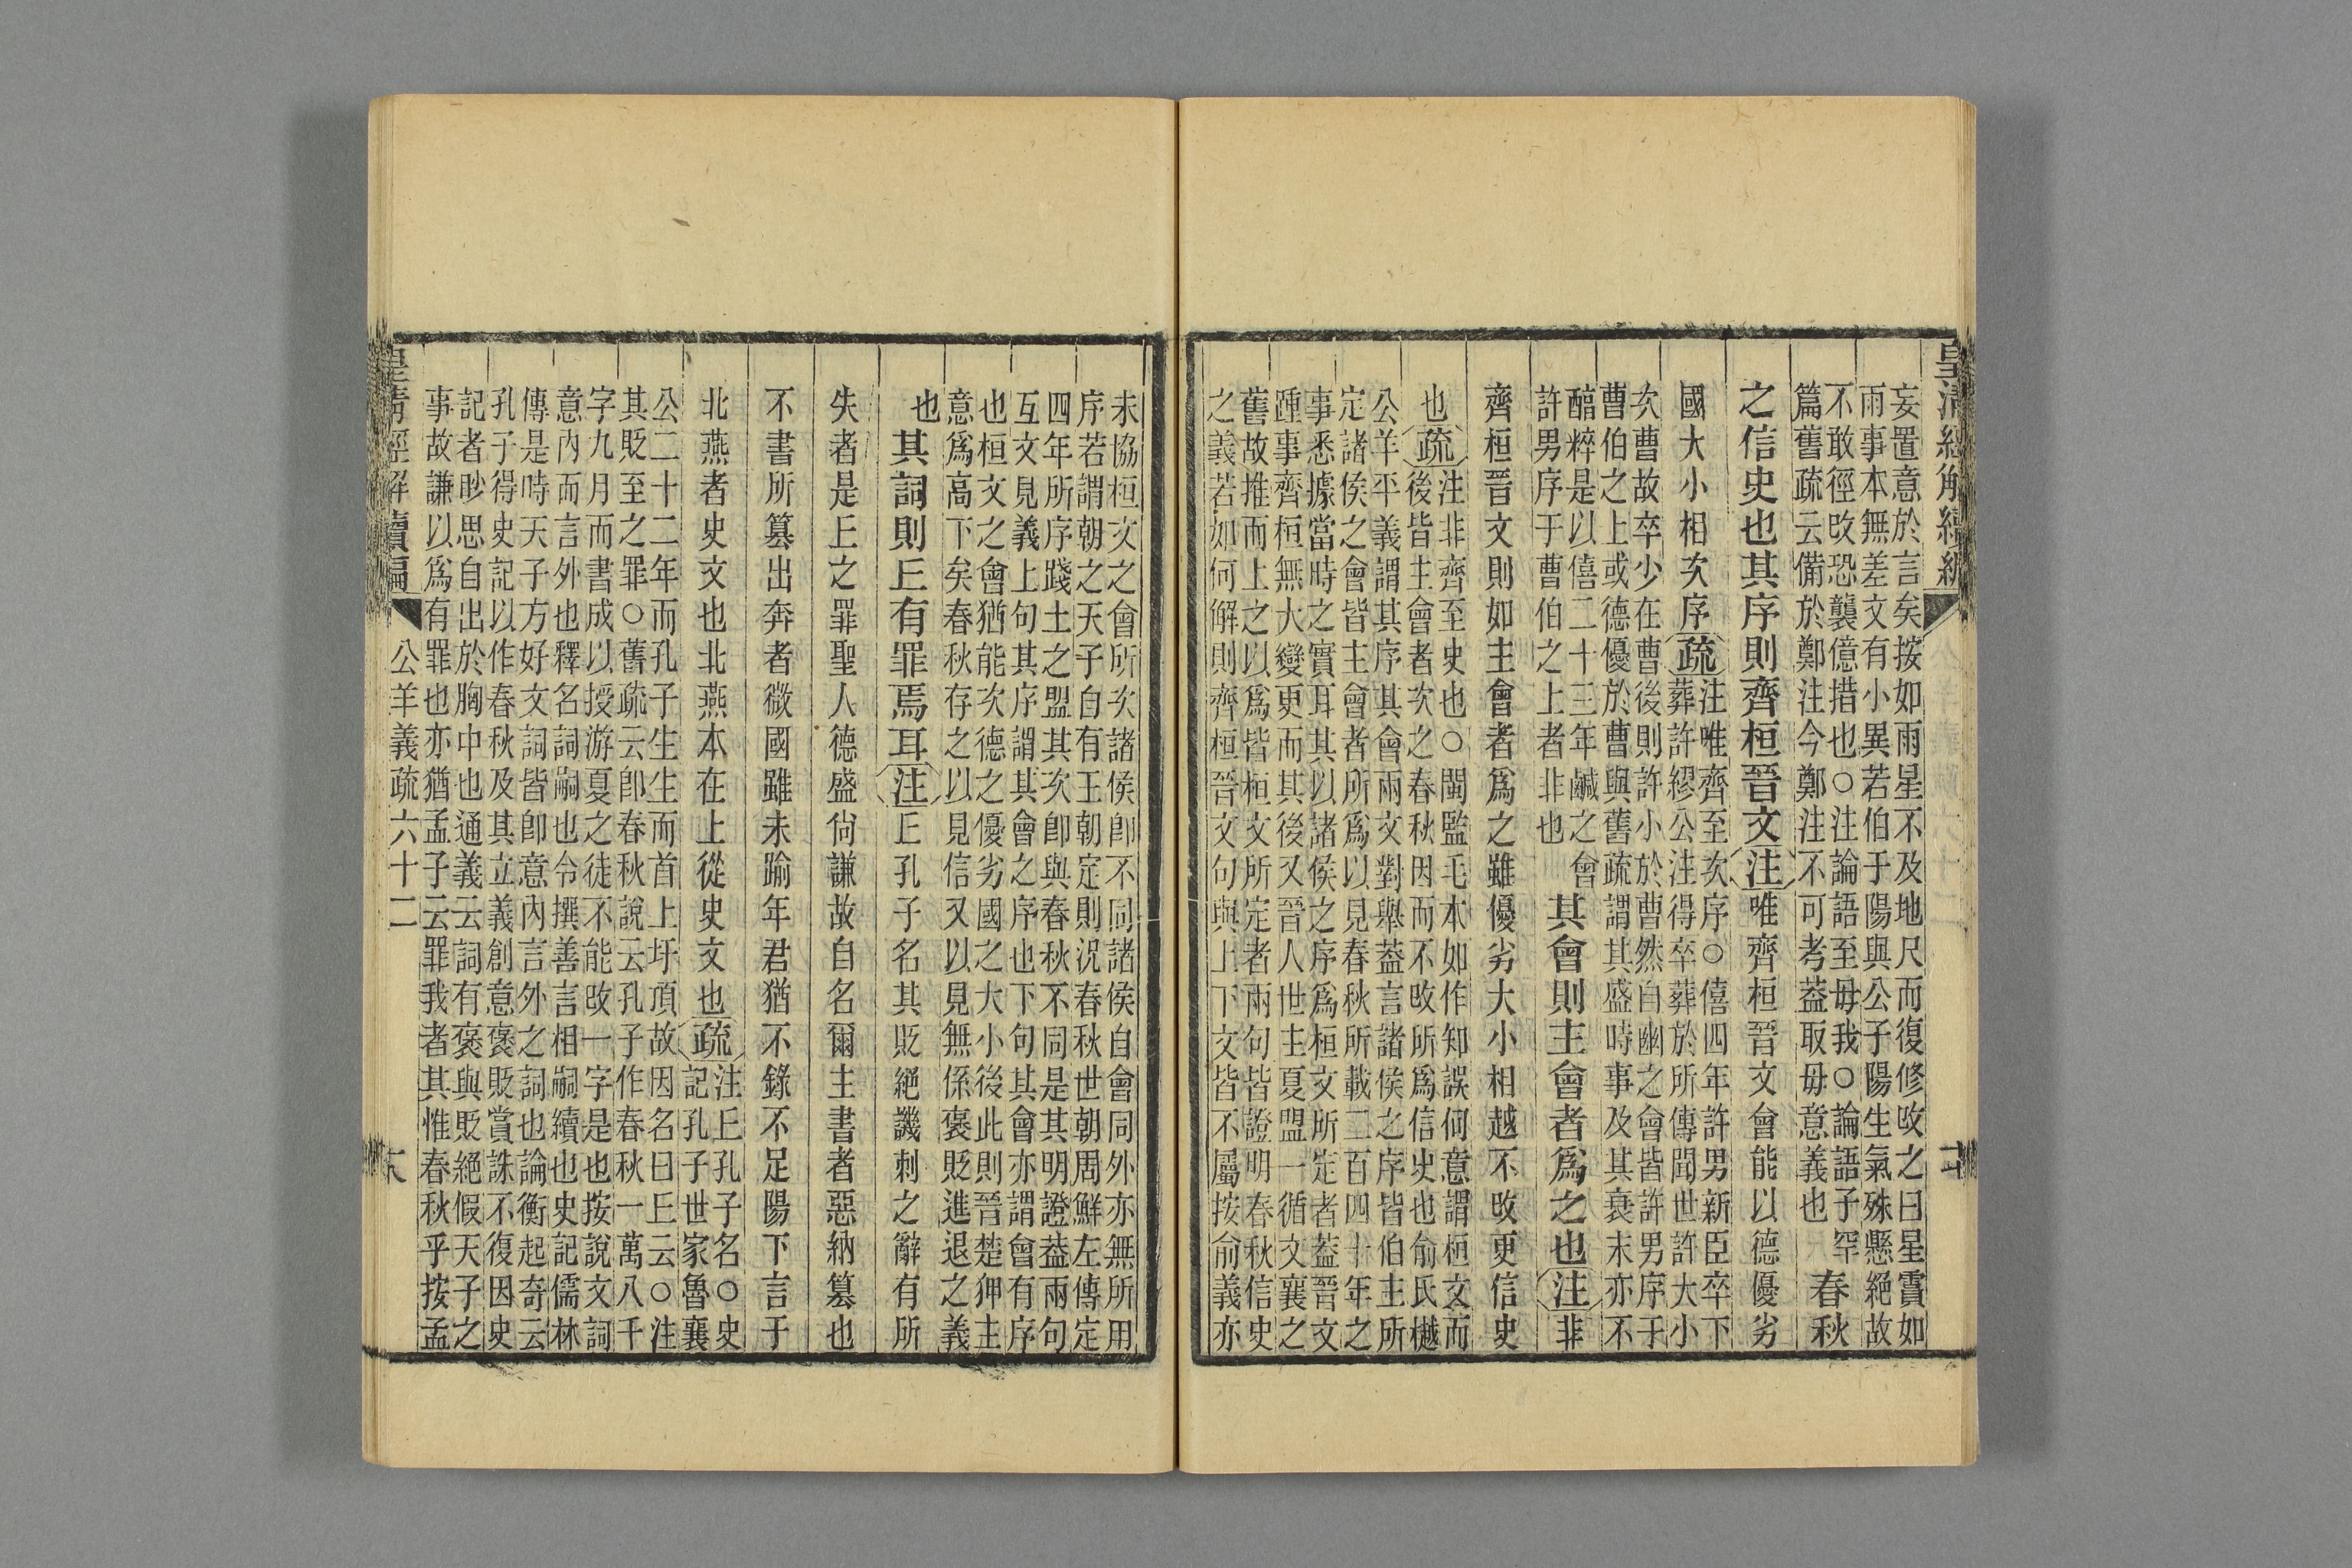 皇清經解續編
妄置意於言矣按如雨星不及地尺而復修改之曰星霣如
雨事本無差文有小異若伯于陽與公子陽生氣殊懸絕故
不敢徑改恐襲億措也○注論語至毋我○論語子罕
篇舊疏云備於鄭注今鄭注不可考葢取毋意義也
春秋
之信史也其序則齊桓晉文注唯齊桓晉文會能以德優劣
國大小相次序疏
注唯齊至次序○僖四年許男新臣卒下
葬許繆公注得卒葬於所傳聞世許大小
次曹故卒少在曹後則許小於曹然自幽之會皆許男序于
曹伯之上或德優於曹與舊疏謂其盛時事及其衰末亦不
醕粹是以僖二十三年鹹之會
許男序于曹伯之上者非也
其會則主會者爲之也注非
齊桓晉文則如主會者爲之雖優劣大小相越不改更信史
也疏
注非齊至史也○閩監毛本如作知誤何意謂桓文而
後皆主會者次之春秋因而不改所爲信史也俞氏樾
公羊平義謂其序其會兩文對舉葢言諸侯之序皆伯主所
定諸侯之會皆主會者所爲以見春秋所載二百四十年之
事悉據當時之實耳其以諸侯之序爲桓文所定者葢晉文
踵事齊桓無大變更而其後又晉人世主夏盟一循文襄之
舊故推而上之以爲皆桓文所定者兩句皆證明春秋信史
之義若如何解則齊桓晉文句與上下文皆不屬按俞義亦
未協桓文之會所次諸侯卽不同諸侯自會同外亦無所用
序若謂朝之天子自有王朝定則況春秋世朝周鮮左傳定
四年所序踐土之盟其次卽與春秋不同是其明證葢兩句
互文見義上句其序謂其會之序也下句其會亦謂會有序
也桓文之會猶能次德之優劣國之大小後此則晉楚狎主
意爲高下矣春秋存之以見信又以見無係褒貶進退之義
也其詞則丘有罪焉耳注丘孔子名其貶絕譏刺之辭有所
失者是丘之罪聖人德盛尙謙故自名爾主書者惡納篡也
不書所篡出奔者微國雖未踰年君猶不錄不足陽下言于
北燕者史文也北燕本在上從史文也疏
注丘孔子名○史
記孔子世家魯襄
公二十二年而孔子生生而首上圩頂故因名曰丘云○注
其貶至之罪○舊疏云卽春秋說云孔子作春秋一萬八千
字九月而書成以授游夏之徒不能改一字是也按說文詞
意內而言外也釋名詞嗣也令撰善言相嗣續也史記儒林
傳是時天子方好文詞皆卽意內言外之詞也論衡起奇云
孔子得史記以作春秋及其立義創意褒貶賞誅不復因史
記者眇思自出於胸中也通義云詞有褒與貶絕假天子之
事故謙以爲有罪也亦猶孟子云罪我者其惟春秋乎按孟
皇清經解續編 公羊義疏六十二